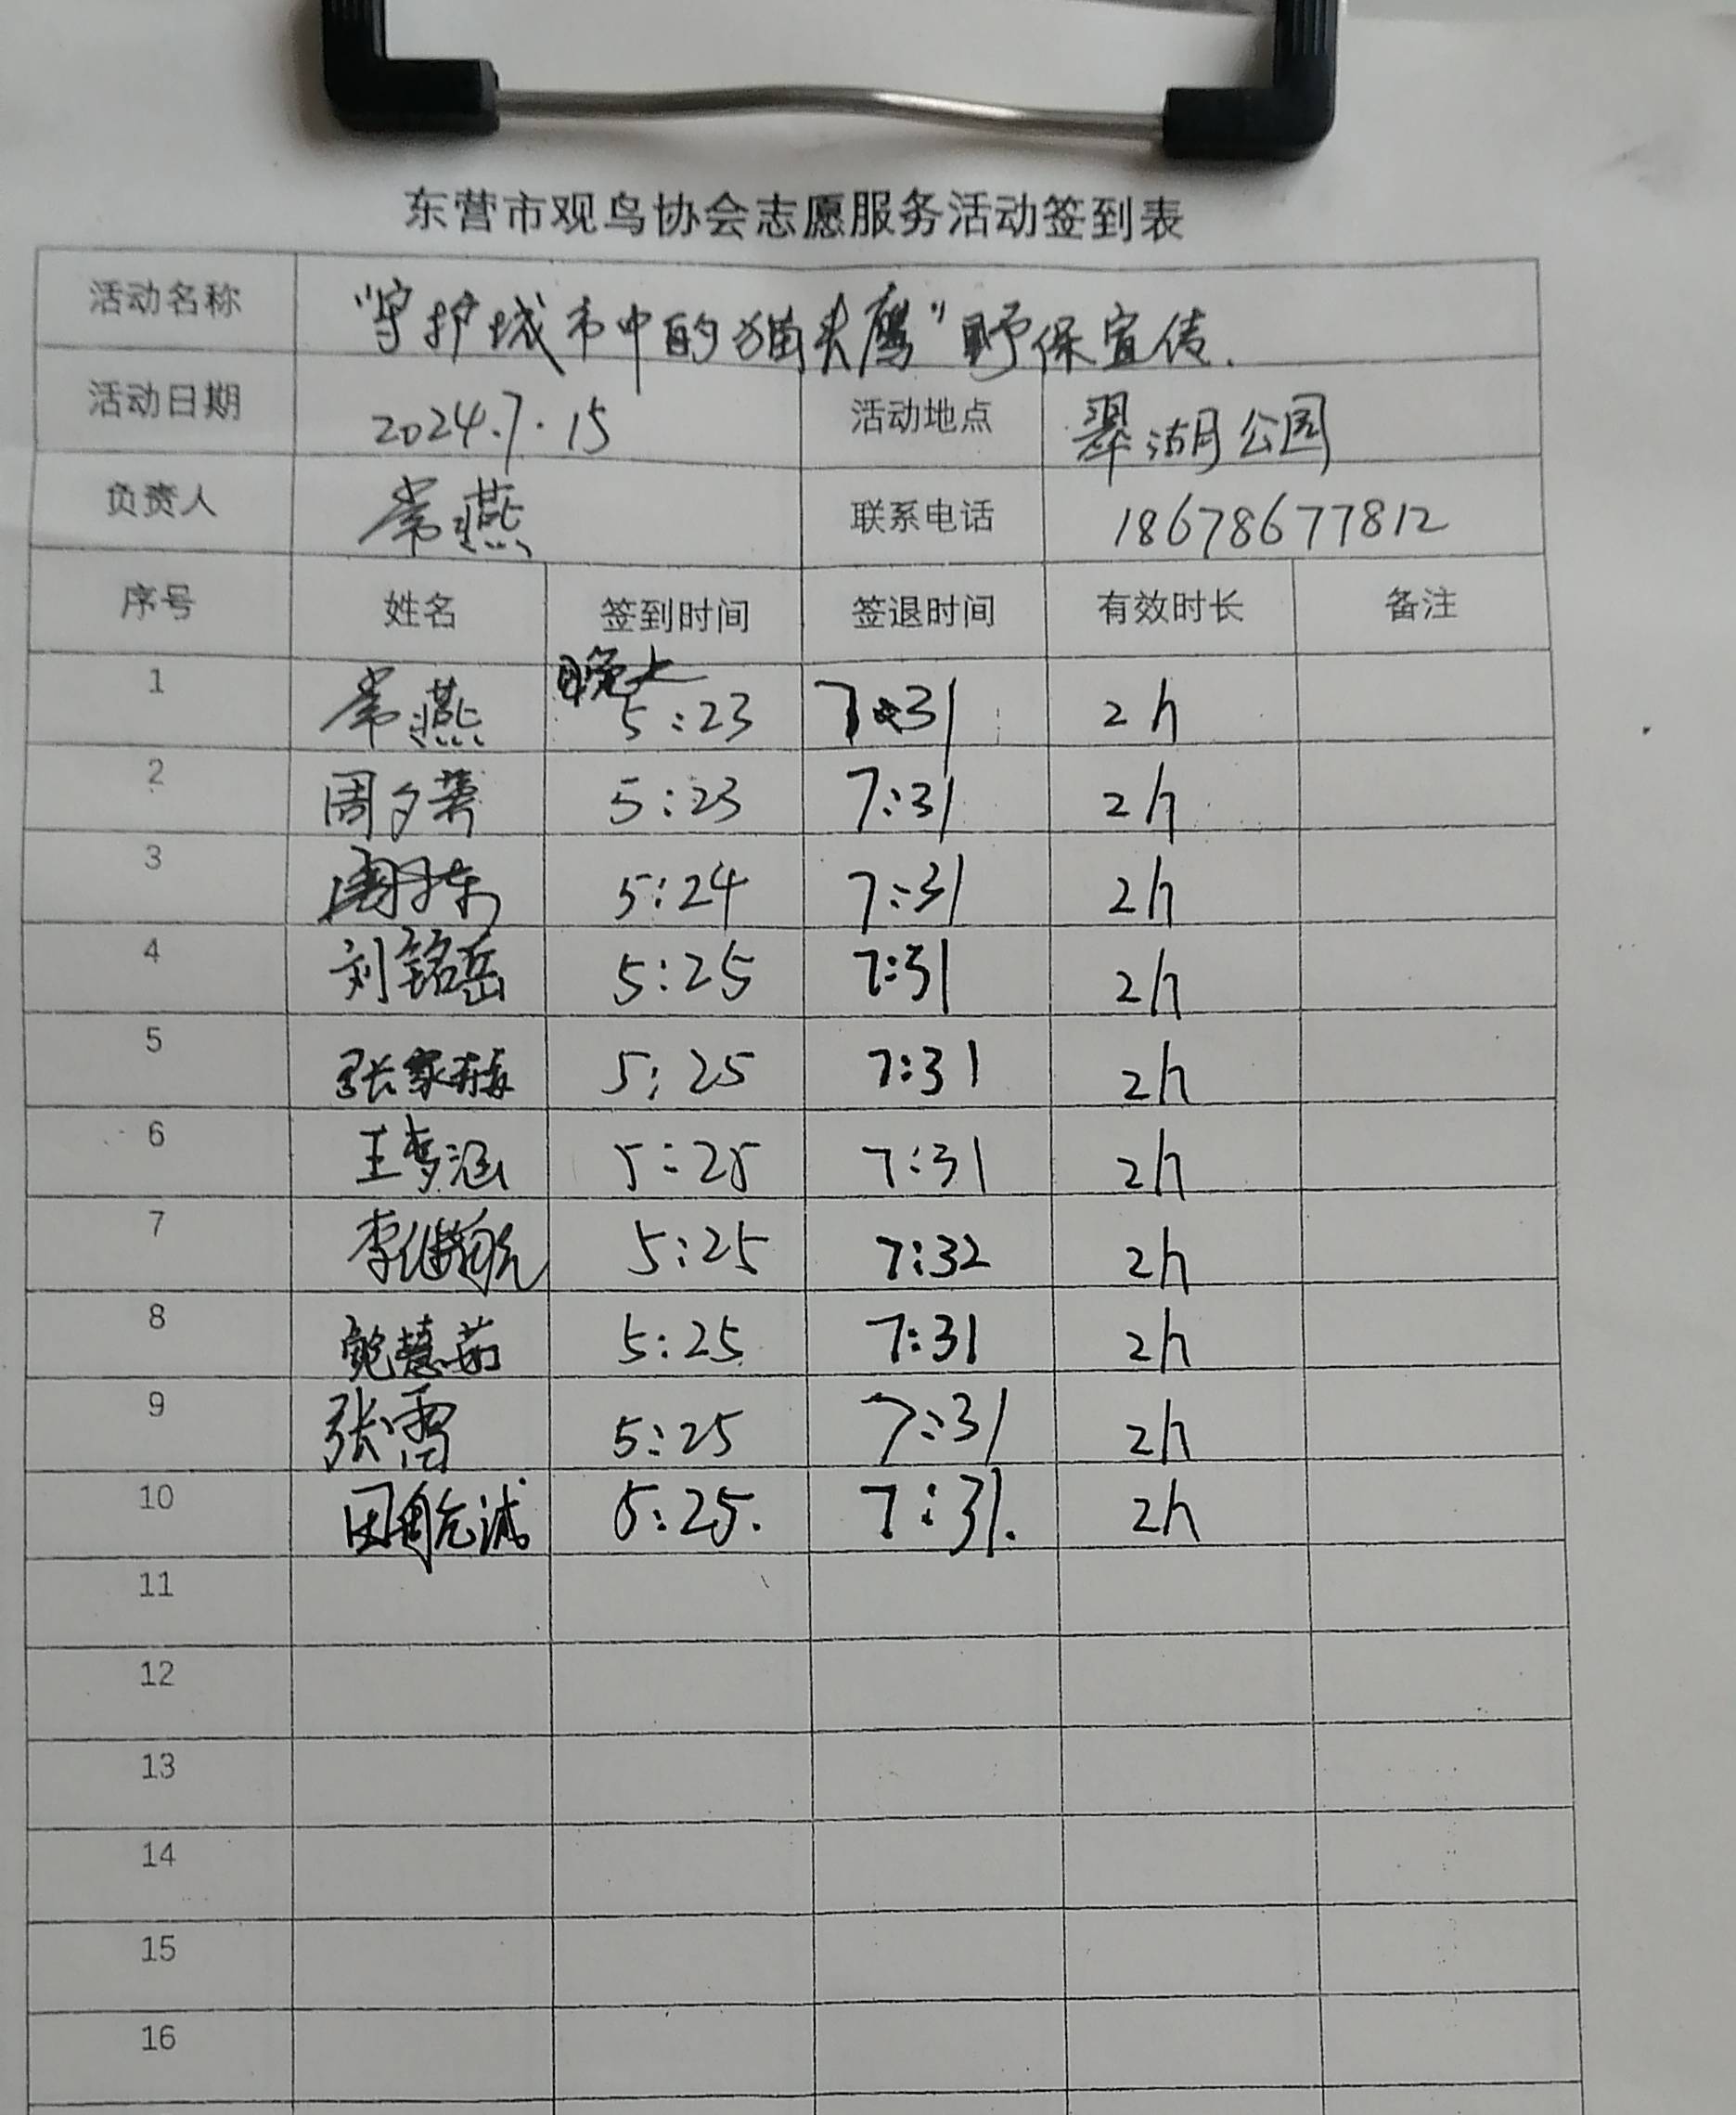 东营市观鸟协会志愿服务活动签到表
活动名称 “守护城市中的猫头鹰”野保宣传.
活动日期 2024.7.15 活动地点 翠湖公园
负责人 常燕 联系电话 18678677812
序号 姓名 签到时间 签退时间 有效时长 备注
晚上
1 常燕 5:23 7:31 2h
2 周夕 5:23 7:31 2h
3 5:24 7:31 2h
4 刘铭岳 5:25 7:31 2h
5 张家 5:25 7:31 2h
6 王梦涵 5:25 7:31 2h
7 李继航 5:25 7:32 2h
8 鲍慧茹 5:25 7:31 2h
9 张雷 5:25 7:31 2h
10 田航 5:25. 7:31. 2h
11
12
13
14
15
16